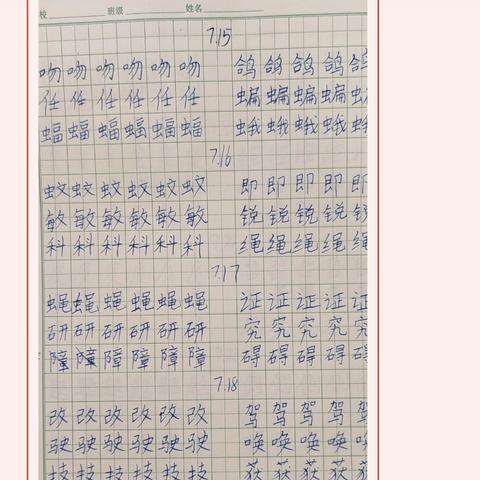 校 班级 姓名
7.15
吻吻吻吻吻吻 鸽鸽鸽鸽鸽
任任任任任任 蝙蝙蝙蝙蝙
蝠蝠蝠蝠蝠蝠 蛾蛾蛾蛾蛾
7.16
蚊蚊蚊蚊蚊蚊 即即即即即
敏敏敏敏敏敏 锐锐锐锐锐
科科科科科科 绳绳绳绳绳
7.17
蝇蝇蝇蝇蝇蝇 证证证证证
研研研研研研 究究究究究
障障障障障障 碍碍碍碍碍
7.18
改改改改改改 驾驾驾驾驾
驶驶驶驶驶驶 唤唤唤唤唤
技技技技技技 获获获获获